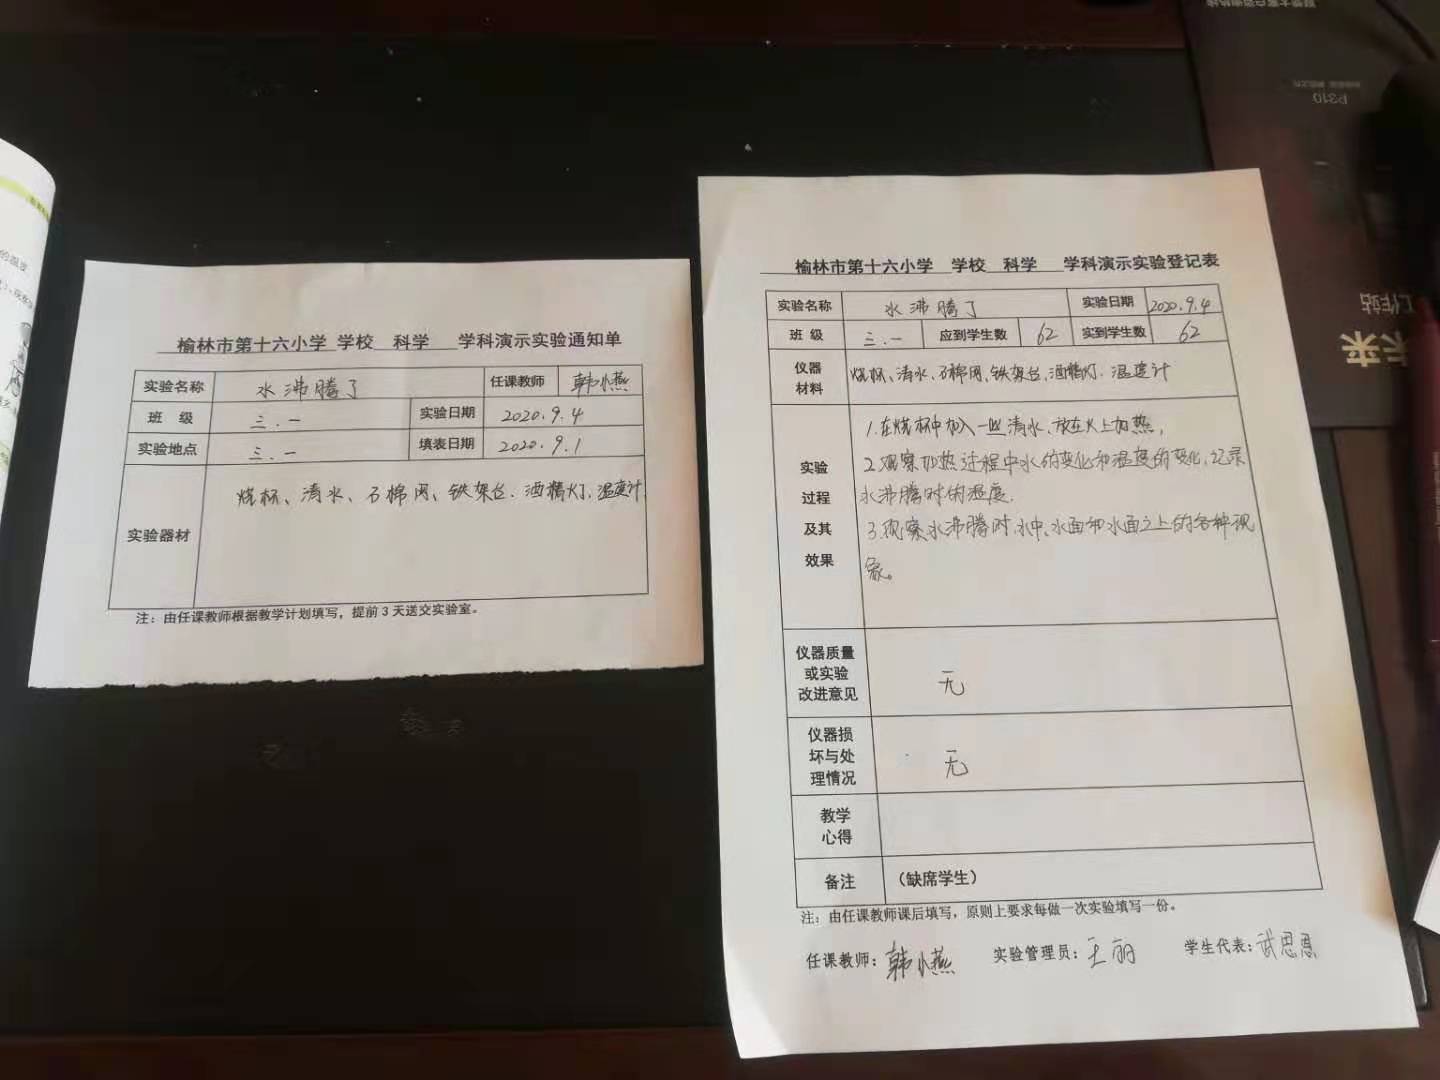 榆林市第十六小学 学校 科学 学科演示实验通知单
实验名称 水沸腾了 任课教师 韩小燕
班 级 三.一 实验日期 2020.9.4
实验地点 三.一 填表日期 2020.9.1
实验器材 烧杯、清水、石棉网、铁架台、酒精灯、温度计
注：由任课教师根据教学计划填写，提前3天送交实验室。
榆林市第十六小学 学校 科学 学科演示实验登记表
实验名称 水沸腾了 实验日期 2020.9.4
班 级 三.一 应到学生数 62 实到学生数 62
仪器
材料
烧杯、清水、石棉网、铁架台、酒精灯、温度计
实验
过程
及其
效果
1.在烧杯中加入一些清水、放在火上加热，
2.观察加热过程中水的变化和温度的变化，记录
水沸腾时的温度.
3.观察水沸腾时，水中、水面和水面之上的各种现
象。
仪器质量
或实验
改进意见
无
仪器损
坏与处
理情况
无
教学
心得
备注 （缺席学生）
注：由任课教师课后填写，原则上要求每做一次实验填写一份。
任课教师：韩小燕 实验管理员：王丽 学生代表：武思思
P310
未来
工作站
的温度